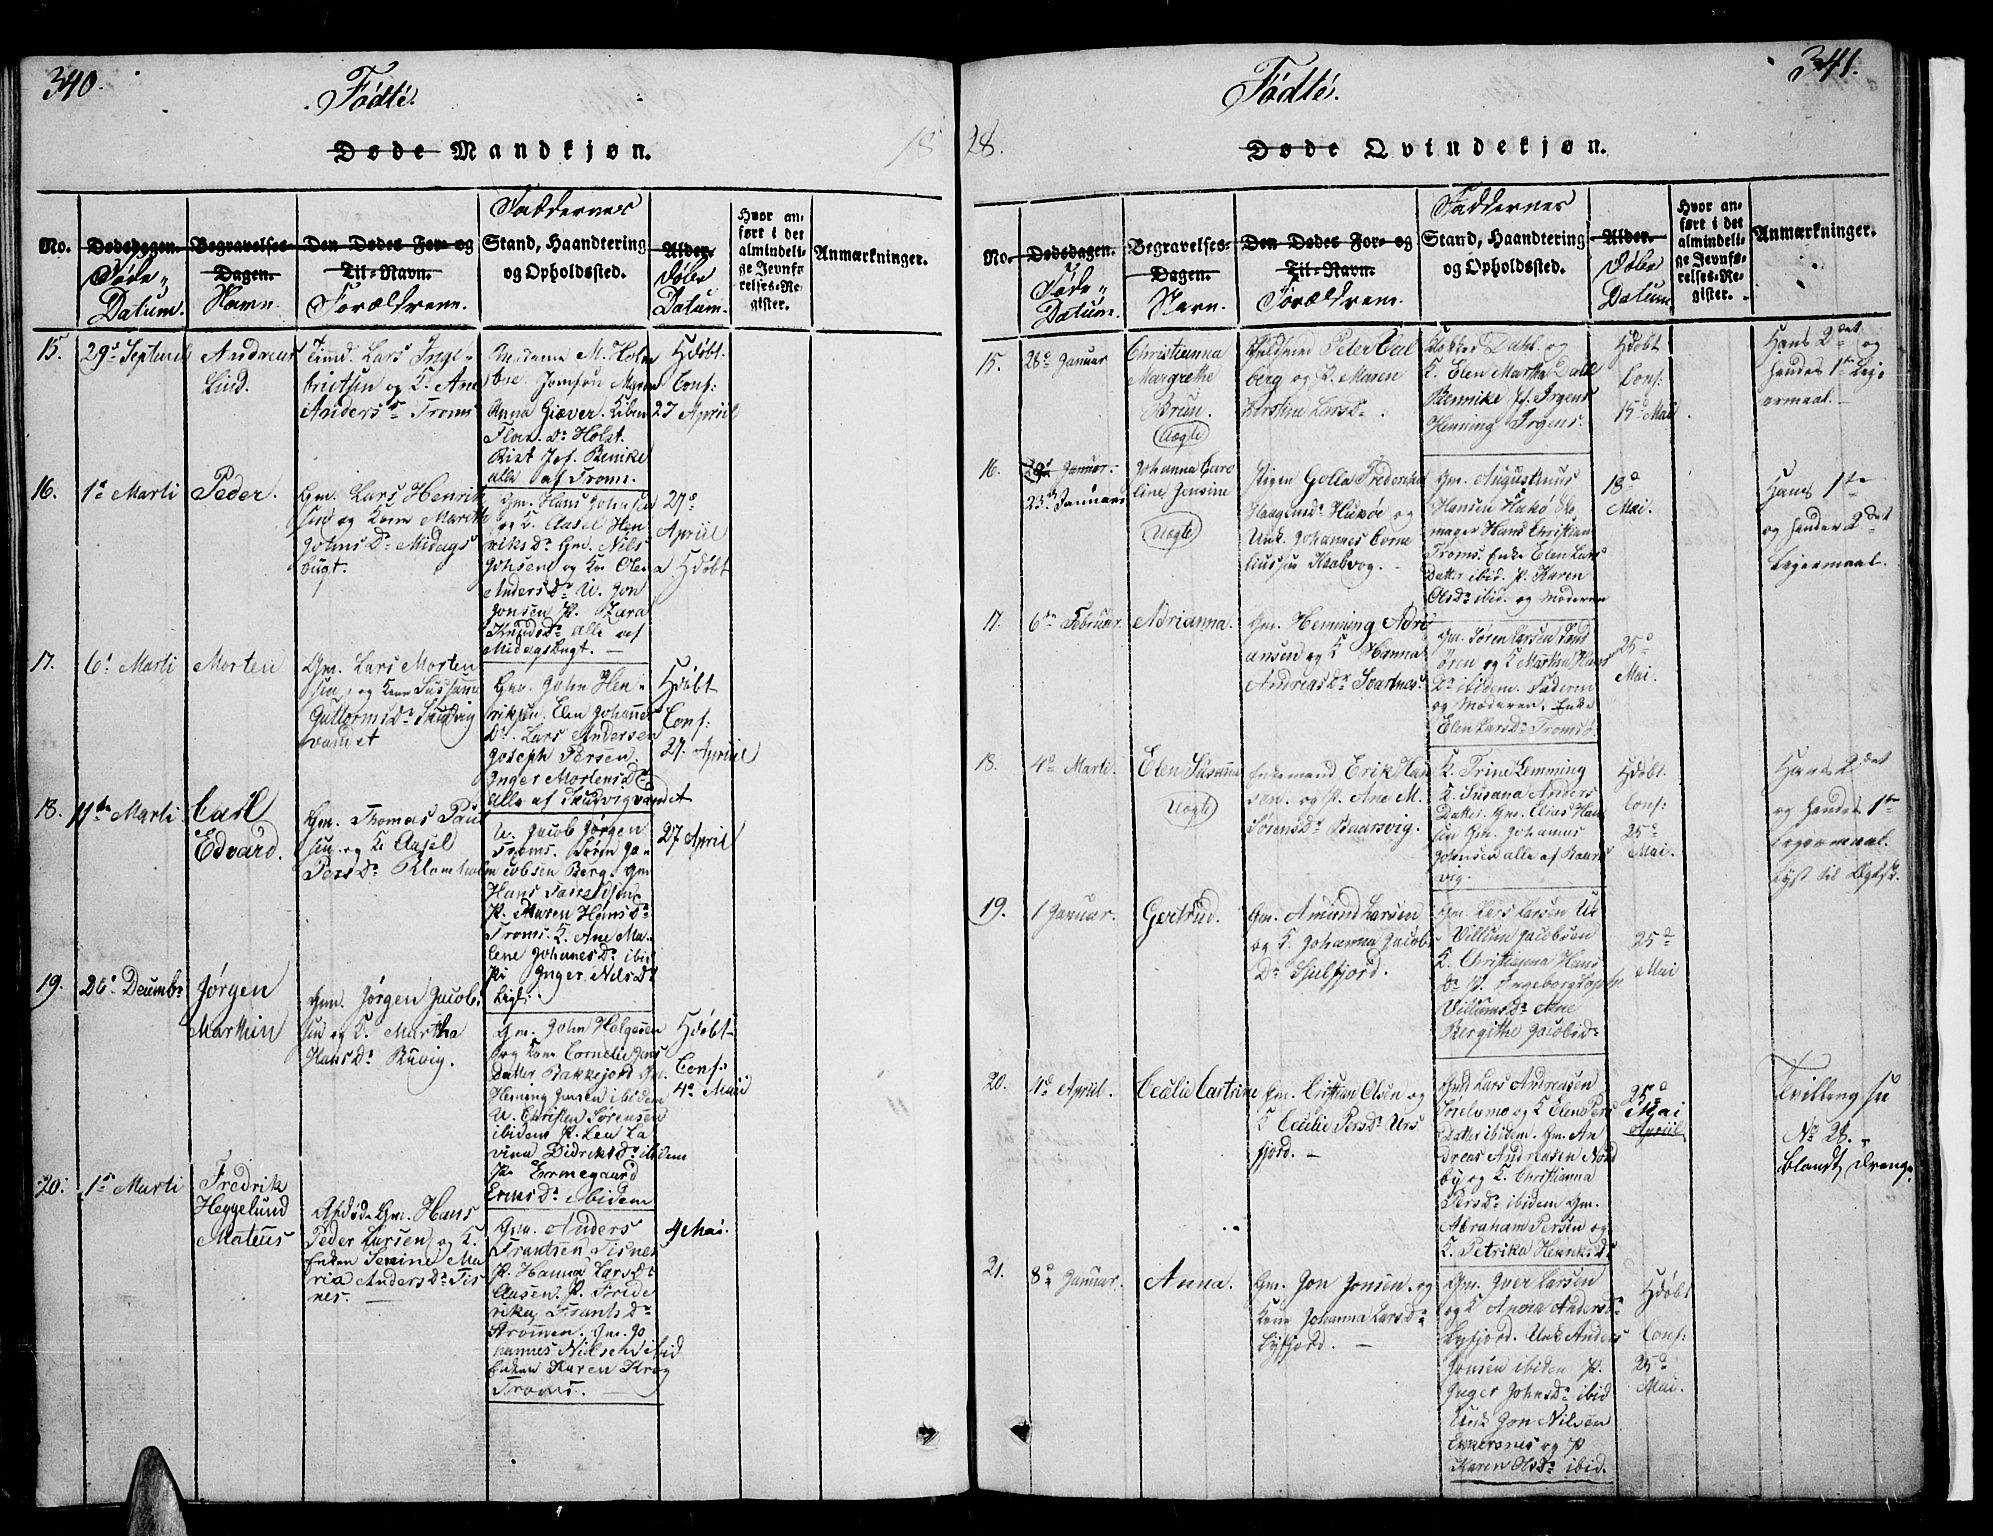 340.
Fødte.
Døde Mandkjøn.
18
No.
Dødsdagen.
Føde-
Datum.
Begravelses-
Dagen.
Navn.
Den Dødes For- og
Til-Navn.
Forældrene.
Faddernes
Stand, Haandtering
og Opholdssted.
Alder.
Døbe
Datum.
Hvor an-
ført i det
almindeli-
ge Jevnfø-
relses-Re-
gister.
Anmærkninger.
15.
29d Septembr
Andreas
Lind.
Lars Inge-
brigtsen og K. Ane
Anders Dr Troms.
Madame M. Holm
Anna Giæver.
Dr Holst.
alle af Troms.
Hdøbt
Conf:
27 Apriil
16.
1d Marti
Peder.
Gm. Lars Henrik
sen og Kone Marith
Johns Dr Midags
bugt.
Gm. Hans Johnsen
og K. Aasel Hen
riks Dr Gm. Nils
Johnsen og Kone Olea
Anders Dr U. Jon
Jonsen P. Zara
Knuds Dr alle af
Midagsbugt.
27d
Apriil
Hdøbt
17.
6d Marti
Morten
Gm. Lars Morten
sen, og Kone Sussanna
Guttorms Dr Skudvig
vandet
Gm. John Hen-
riksen. Elen Johannes
Dr Lars Andersen
Joseph Persen
Inger Mortens Dr
alle af Skudvigvandet
Hdøbt
Conf:
27. Apriil
18.
11te Marti
Carl
Edvard.
Gm. Thomas Paul
sen og K. Aasel
Pers Dr Blomholm
U. Jacob Jørgen
Troms. Søren Ja-
cobsen Berg. Gm
Hans
P. Maren Hans Dr
Troms. K. Ane Ma-
lene Johanes Dr ibid
P. Inger Nils Dr
27 April
19.
26d Decembr
Jørgen
Martin
Gm. Jørgen Jacob-
sen og K. Martha
Hans Dr Buvig.
Gm. John Holgesen
og Kone Cornelie Jens
Datter Bakkejord Gm.
Heming Jensen ibidem
U. Christen Sørensen
ibidem P. Len La
vina Didriks Dr ibidem
P. Ermegaard
Eriks Dr ibidem
Hdøbt
Conf:
4d Maii
20.
1d Marti
Fredrik
Heggelund
Mateus
Afdøde Gm. Hans
Peder Larsen og K.
Enken Serine Ma
ria Anders Dr Tis
nes.
Gm. Anders
Frantsen Tisnes
P. Hanna Lars Dr
Aasen. P. Fride
rika Frants Dr
Strømmen. Gm. Jo
hannes Nilsen ibid
Enken Karen Krog
Troms.
4 Mai.
341.
Fødte.
28.
Døde Qvindekjøn.
No.
Dødsdagen.
Føde-
Datum.
Begravelses-
Dagen.
Navn.
Den Dødes For- og
Til-Navn.
Forældrene.
Faddernes
Stand, Haandtering
og Opholdssted.
Alder.
Døbe
Datum.
Hvor an-
ført i det
almindeli-
ge Jevnfø-
relses-Re-
gister.
Anmærkninger.
15.
28d Januar
Christianna
Margrethe
Brun.
Uægte
Peter Carl
berg og P. Maren
Kirstine Lars Dr.
Klokker Dahl. og
K. Elen Martha Dall
Bennike P. Irgens
Henning Irgens.
Hdøbt
Conf:
15d Mai
Hans 2det og
hendes 1te Leje
ermaal.
16.
Januar.
23d Januari
Johanna Caro
line Jensine
Uægte
Pigen Golla Frederiche
Haagens Dr Hukøe og
Unk. Johannes Corne
liussen Kaalvog.
Gm. Augustinus
Hansen Hukø Sko
mager Hans Christian
Troms. Enke Elen Lars
Datter ibid. P. Karen
Ols Dr ibid. og Moderen
18d
Mai.
Hans 1te
og hendes 2det
Lejermaal.
17.
6te Februar.
Adrianna.
Gm. Hemming Adri
ansen og K. Hanna
Andreas Dr Svartnes
Gm. Søren Larsen
og K Martha Hans
Dr ibidem. Faderen
og Moderen. Enke
Elen Lars Dr Tromsø.
25d
Mai.
18.
4d Marti.
Elen Susanna
Uægte
Enkemand Erik Han
sen. og P. Ane M.
Sørens Dr Baarsvig.
K. Trine Lemming
K. Susana Anders
Datter. Gm. Elias Han
sen Gm. Johannes
Johnsen alle af Baars
vig.
Hdøbt.
Conf:
25d
Mai.
Hans 2det
og hendes 1te
Lejermaal.
19.
1 Januar.
Gertrud.
Gm. Amund Larsen
og K. Johanna Jacobs
Dr Spilfjord.
Gm. Lars Larsen U.
Villum Jacobsen
K. Christianna Hans
Dr P. Ingeborg Sophie
Villums Dr Ane
Bergithe Jacobs Dr
25d
Mai
20.
4d Apriil.
Cecilie Cartrine
Gm. Cristian Olsen og
K Cecilie Pers Dr Urs
fjord.
Lars Andreasen
og K Elen Pers
Datter ibidem. Gm. An
dreas Andreasen Nord
by og K. Christianna
Pers Dr ibidem Gm.
Abraham Persen og
K. Petrika Henriks Dr
25d
Mai
Apriil
Tvilling se
No 28.
blandt Drenge.
21.
8d Januar.
Anna.
Gm. Jon Jonsen. og
Kone Johanna Lars Dr
Lyfjord.
Gm. Iver Larsen
og K Anna Anders Dr
Lyfjord. Unk Anders
Jonsen ibidem P.
Inger Johns Dr ibid
Unk Jon Nilsen
og P
Karen Ols Dr ibid.
Hdøbt
Conf:
25d
Mai.